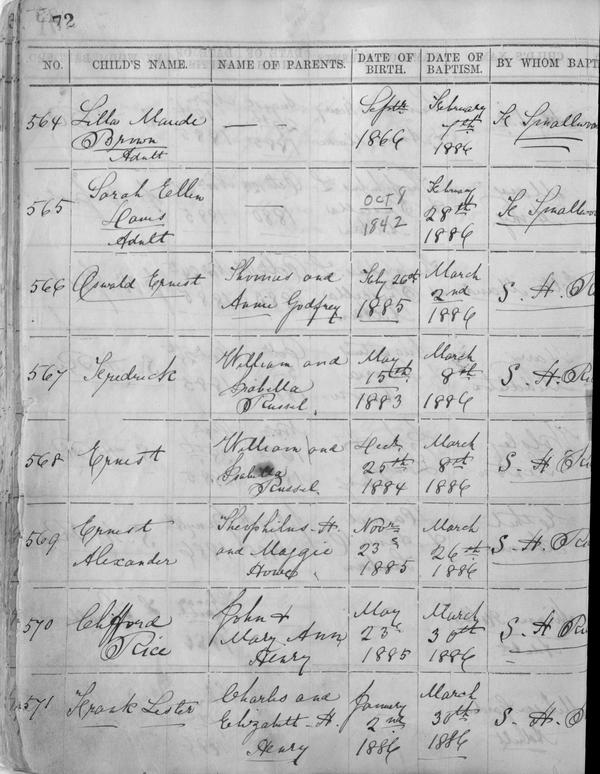 72
NO. CHILD'S NAME. NAME OF PARENTS. DATE OF BIRTH. DATE OF BAPTISM. BY WHOM BAPT
564 Lilla Maude Brown Adult — — Septr 1866 February 7th 1886 F Smallwoo
565 Sarah Ellen Davis Adult — OCT 9 1842 February 28th 1886 F Smallwoo
566 Oswald Ernest Thomas and Annie Godfrey Feby 26th 1885 March 2nd 1886 S. H. Ric
567 Fredrick William and Isabella Russel. May 15th 1883 March 8th 1886 S. H. Ric
568 Ernest William and Isabella Russel. Decr. 25th 1884 March 8th 1886 S. H. Ric
569 Ernest Alexander Theophilus H. and Maggie Howe Novr 23 1885 March 26th 1886 S. H. Ric
570 Clifford Rice John & Mary Ann Henry May 23 1885 March 30th 1886 S. H. Ric
571 Frank Lester Charles and Elizabeth H. Henry January 2nd 1886 March 30th 1886 S. H. R